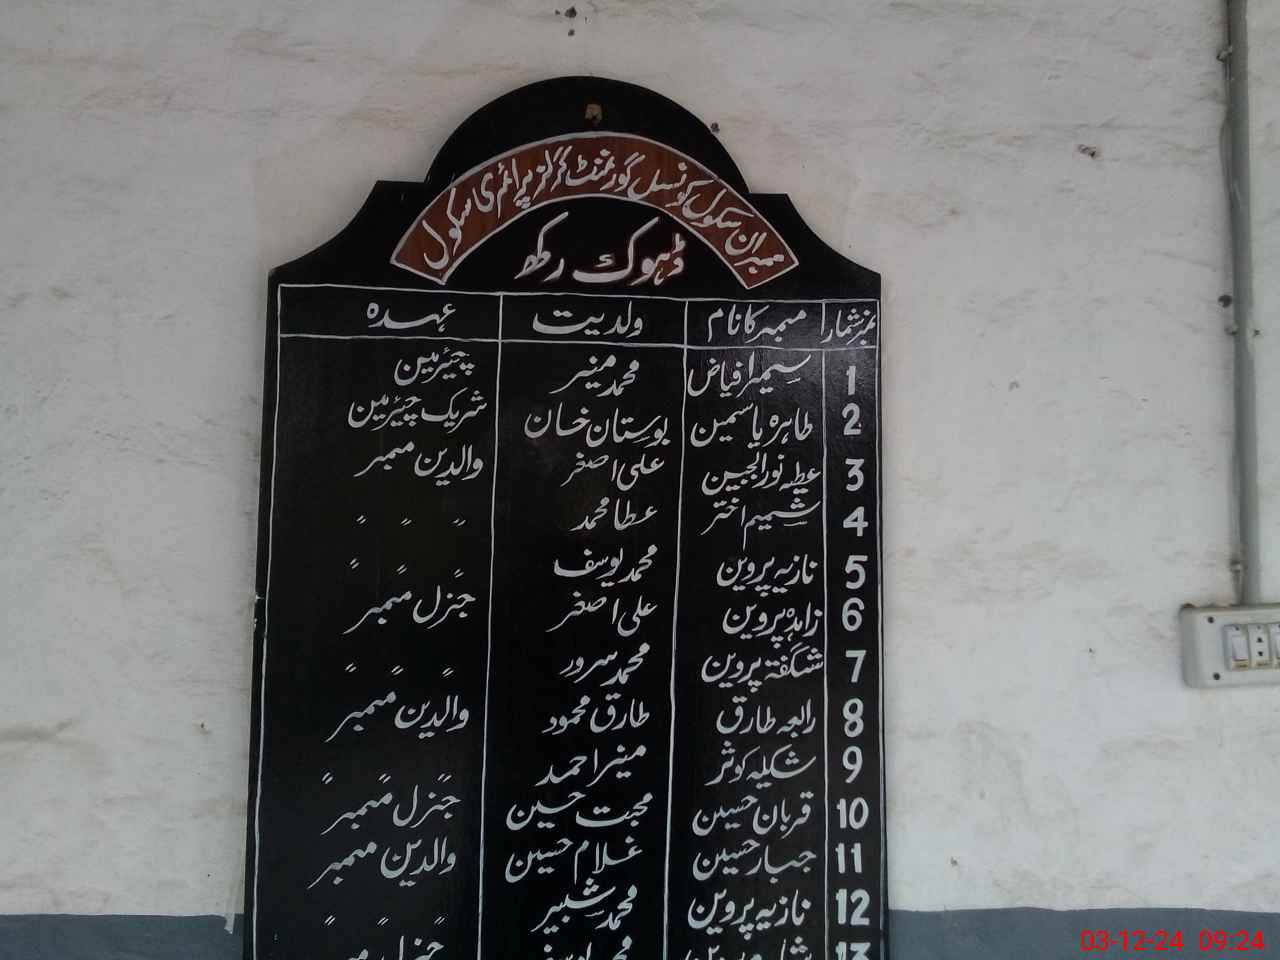 ممبران سکول کونسل گورنمنٹ گرلز پرائمری سکول
ڈہوک رکھ
نمبر شمار ممبر کا نام ولدیت عہدہ
1 سمیرا فیاض محمد منیر چیئرمین
2 طاہرہ یاسمین بوستان خان شریک چیئرمین
3 عطیہ نور الجبین علی اصغر والدین ممبر
4 شمیم اختر عطا محمد " " "
5 نازیہ پروین محمد یوسف " " "
6 زاہدہ پروین علی اصغر جنرل ممبر
7 شگفتہ پروین محمد سرور " " "
8 رابعہ طارق طارق محمود والدین ممبر
9 شکیلہ کوثر منیر احمد " " "
10 قربان حسین محبت حسین جنرل ممبر
11 جبار حسین غلام حسین والدین ممبر
12 نازیہ پروین محمد شبیر " " "
13 پروین محمد یوسف جنرل ممبر
03-12-24 09:24